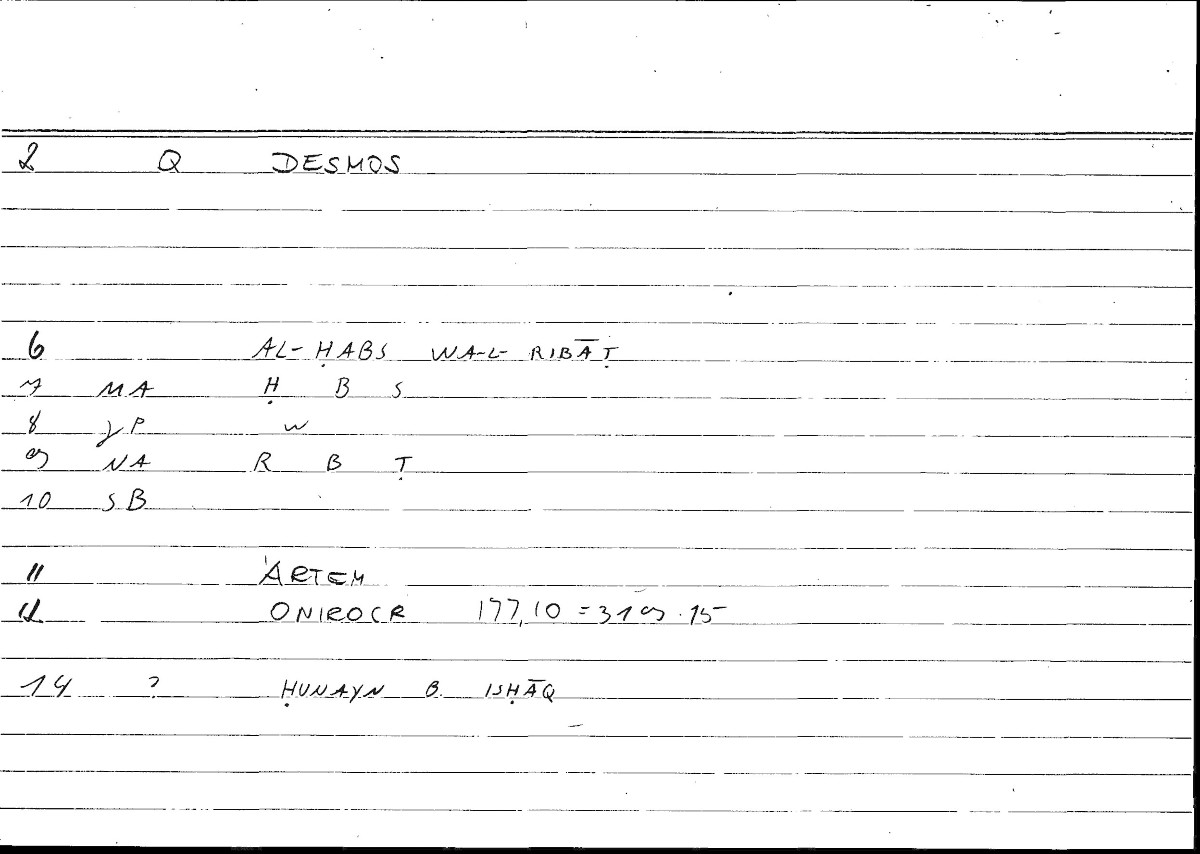 2 Q DESMOS
6 AL-ḤABS WA-L-RIBĀṬ
7 MA Ḥ B S
8 γP W
9 NA R B Ṭ
10 SB
11 ARTEM
12 ONIROCR 177,10 = 319.15
14 ? ḤUNAYN B. ISḤĀQ